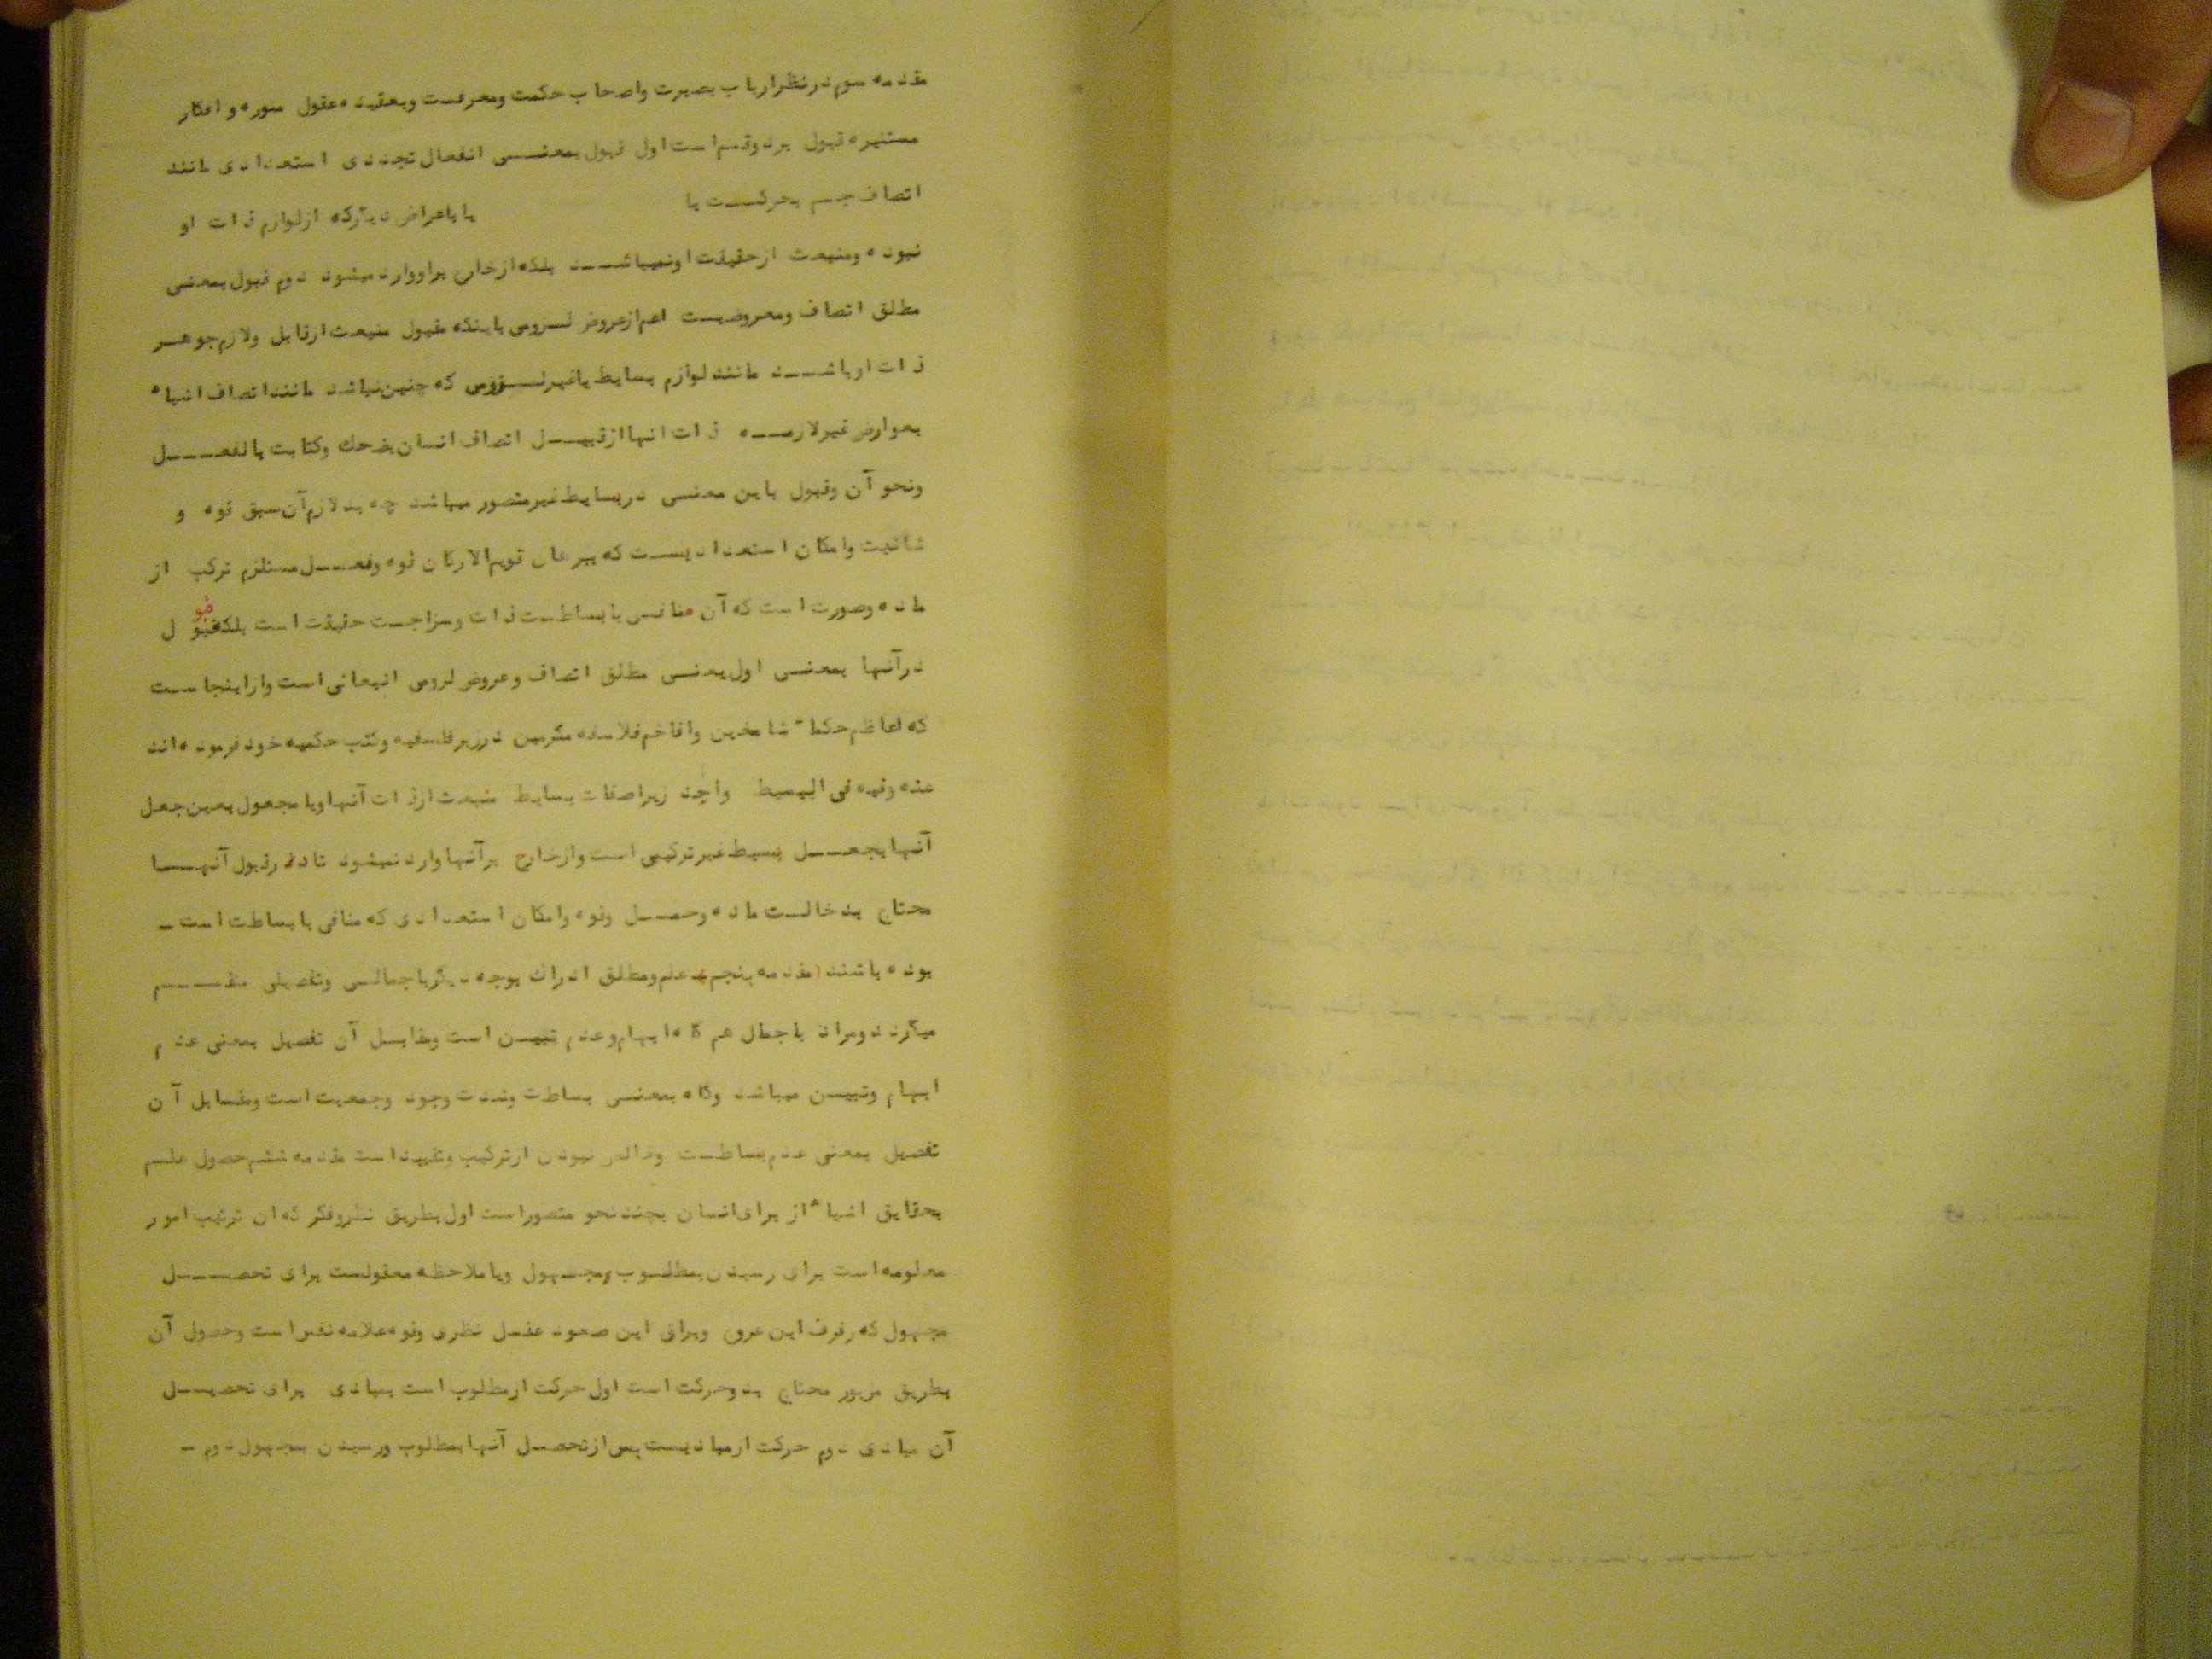 مقدمه سوم در نظر ارباب بصیرت واصحاب حکمت ومعرفت وبعقیده عقول منوره و افکار
مستنیره قبول بر دوقسم است اول قبول بمعنی انفعال تجددی استعدادی مانند
اتصاف جسم بحرکت یا یا باعراض دیگرکه ازلوازم ذات او
نبوده ومنبعث ازحقیقت اونمیباشد بلکه ازخارج براووارد میشود دوم قبول بمعنی
مطلق اتصاف ومعروضیت اعم ازعروض لزومی باینکه مقبول منبعث ازقابل ولازم جوهر
ذات اوباشد مانند لوازم بسایط یاغیرلزومی که چنین نباشد مانند اتصاف اشیاء
بعوارض غیرلازمه ذات انها ازقبیل اتصاف انسان بضحك وکتابت بالفعل
ونحو آن وقبول باین معنی دربسایط غیرمتصور میباشد چه بد لازم آن سبق قوه و
شانیت وامکان استعدادیست که ببرهان قویم الارکان قوه وفعل مستلزم ترکب از
ماده وصورت است که آن منافی بابساطت ذات وسزاجت حقیقت است بلکه قبول
درآنها بمعنی اول یعنی مطلق اتصاف وعروض لزومی انبعاثی است وازاینجاست
که اعاظم حکماء شامخین وافاخم فلاسفه مکرمین درزبر فلسفیه وکتب حکمیه خود فرموده اند
عنه وفیه فی البسیط واحد زیرا صفات بسایط منبعث ازذات آنها ویا مجعول بعین جعل
آنها بجعل بسیط غیرترکیبی است وازخارج برآنها وارد نمیشود تا در قبول آنها
محتاج بدخالت ماده وحمل وقوه وامکان استعدادی که منافی بابساطت است ـ
بوده باشند (مقدمه پنجم) علم ومطلق ادراك بوجه دیگر باجمالی وتفصیلی منقسم
میگردد ومراد باجمال هم گاه ابهام وعدم تبین است ومقابل آن تفصیل بمعنی عدم
ابهام وتبین میباشد وگاه بمعنی بساطت وشدت وجود وجمعیت است ومقابل آن
تفصیل بمعنی عدم بساطت وخالص نبودن ازترکیب وتقیید است مقدمه ششم حصول علم
بحقایق اشیاء از برای انسان بچند نحو متصوراست اول بطریق نظروفکر که ان ترتیب امور
معلومه است برای رسیدن بمطلوب مجهول ویا ملاحظه معقولست برای تحصل
مجهول که رفرف این عروج وبراق این صعود عقل نظری وقوه علامه نفس است وحصول آن
بطریق مزبور محتاج بدوحرکت است اول حرکت ازمطلوب است بمبادی برای تحصیل
آن مبادی دوم حرکت ازمبادیست پس ازتحصل آنها بمطلوب ورسیدن بمجهول دوم ـ